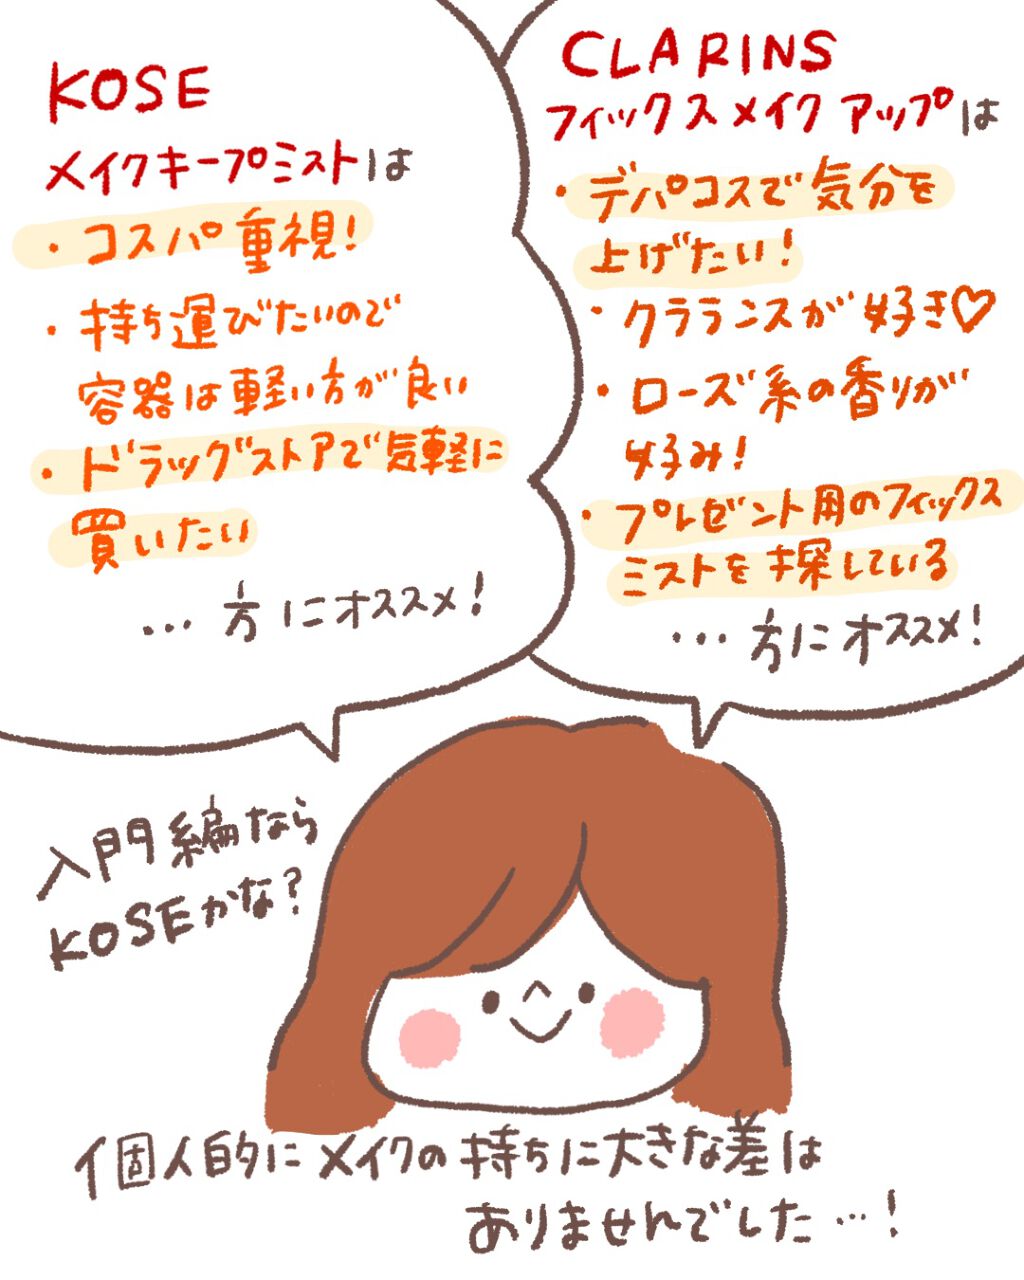 KOSE
メイクキープミストは
・コスパ重視!
・持ち運びたいので
容器は軽い方が良い
・ドラッグストアで気軽に
買いたい
… 方にオススメ!
CLARINS
フィックスメイクアップは
・デパコスで気分を
上げたい!
・クラランスが好き♡
・ローズ系の香りが
好み!
・プレゼント用のフィックス
ミストを探している
… 方にオススメ!
入門編なら
KOSEかな?
個人的にメイクの持ちに大きな差は
ありませんでした…!